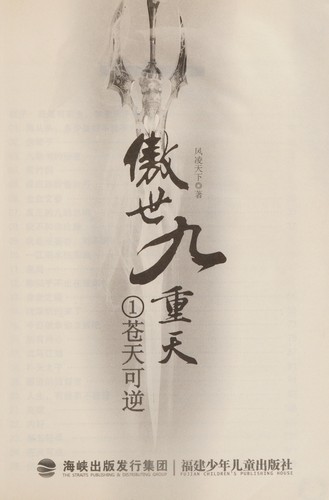 傲世九重天
风凌天下◎著
①苍天可逆
海峡出版发行集团
THE STRAITS PUBLISHING & DISTRIBUTING GROUP
福建少年儿童出版社
FUJIAN CHILDREN'S PUBLISHING HOUSE